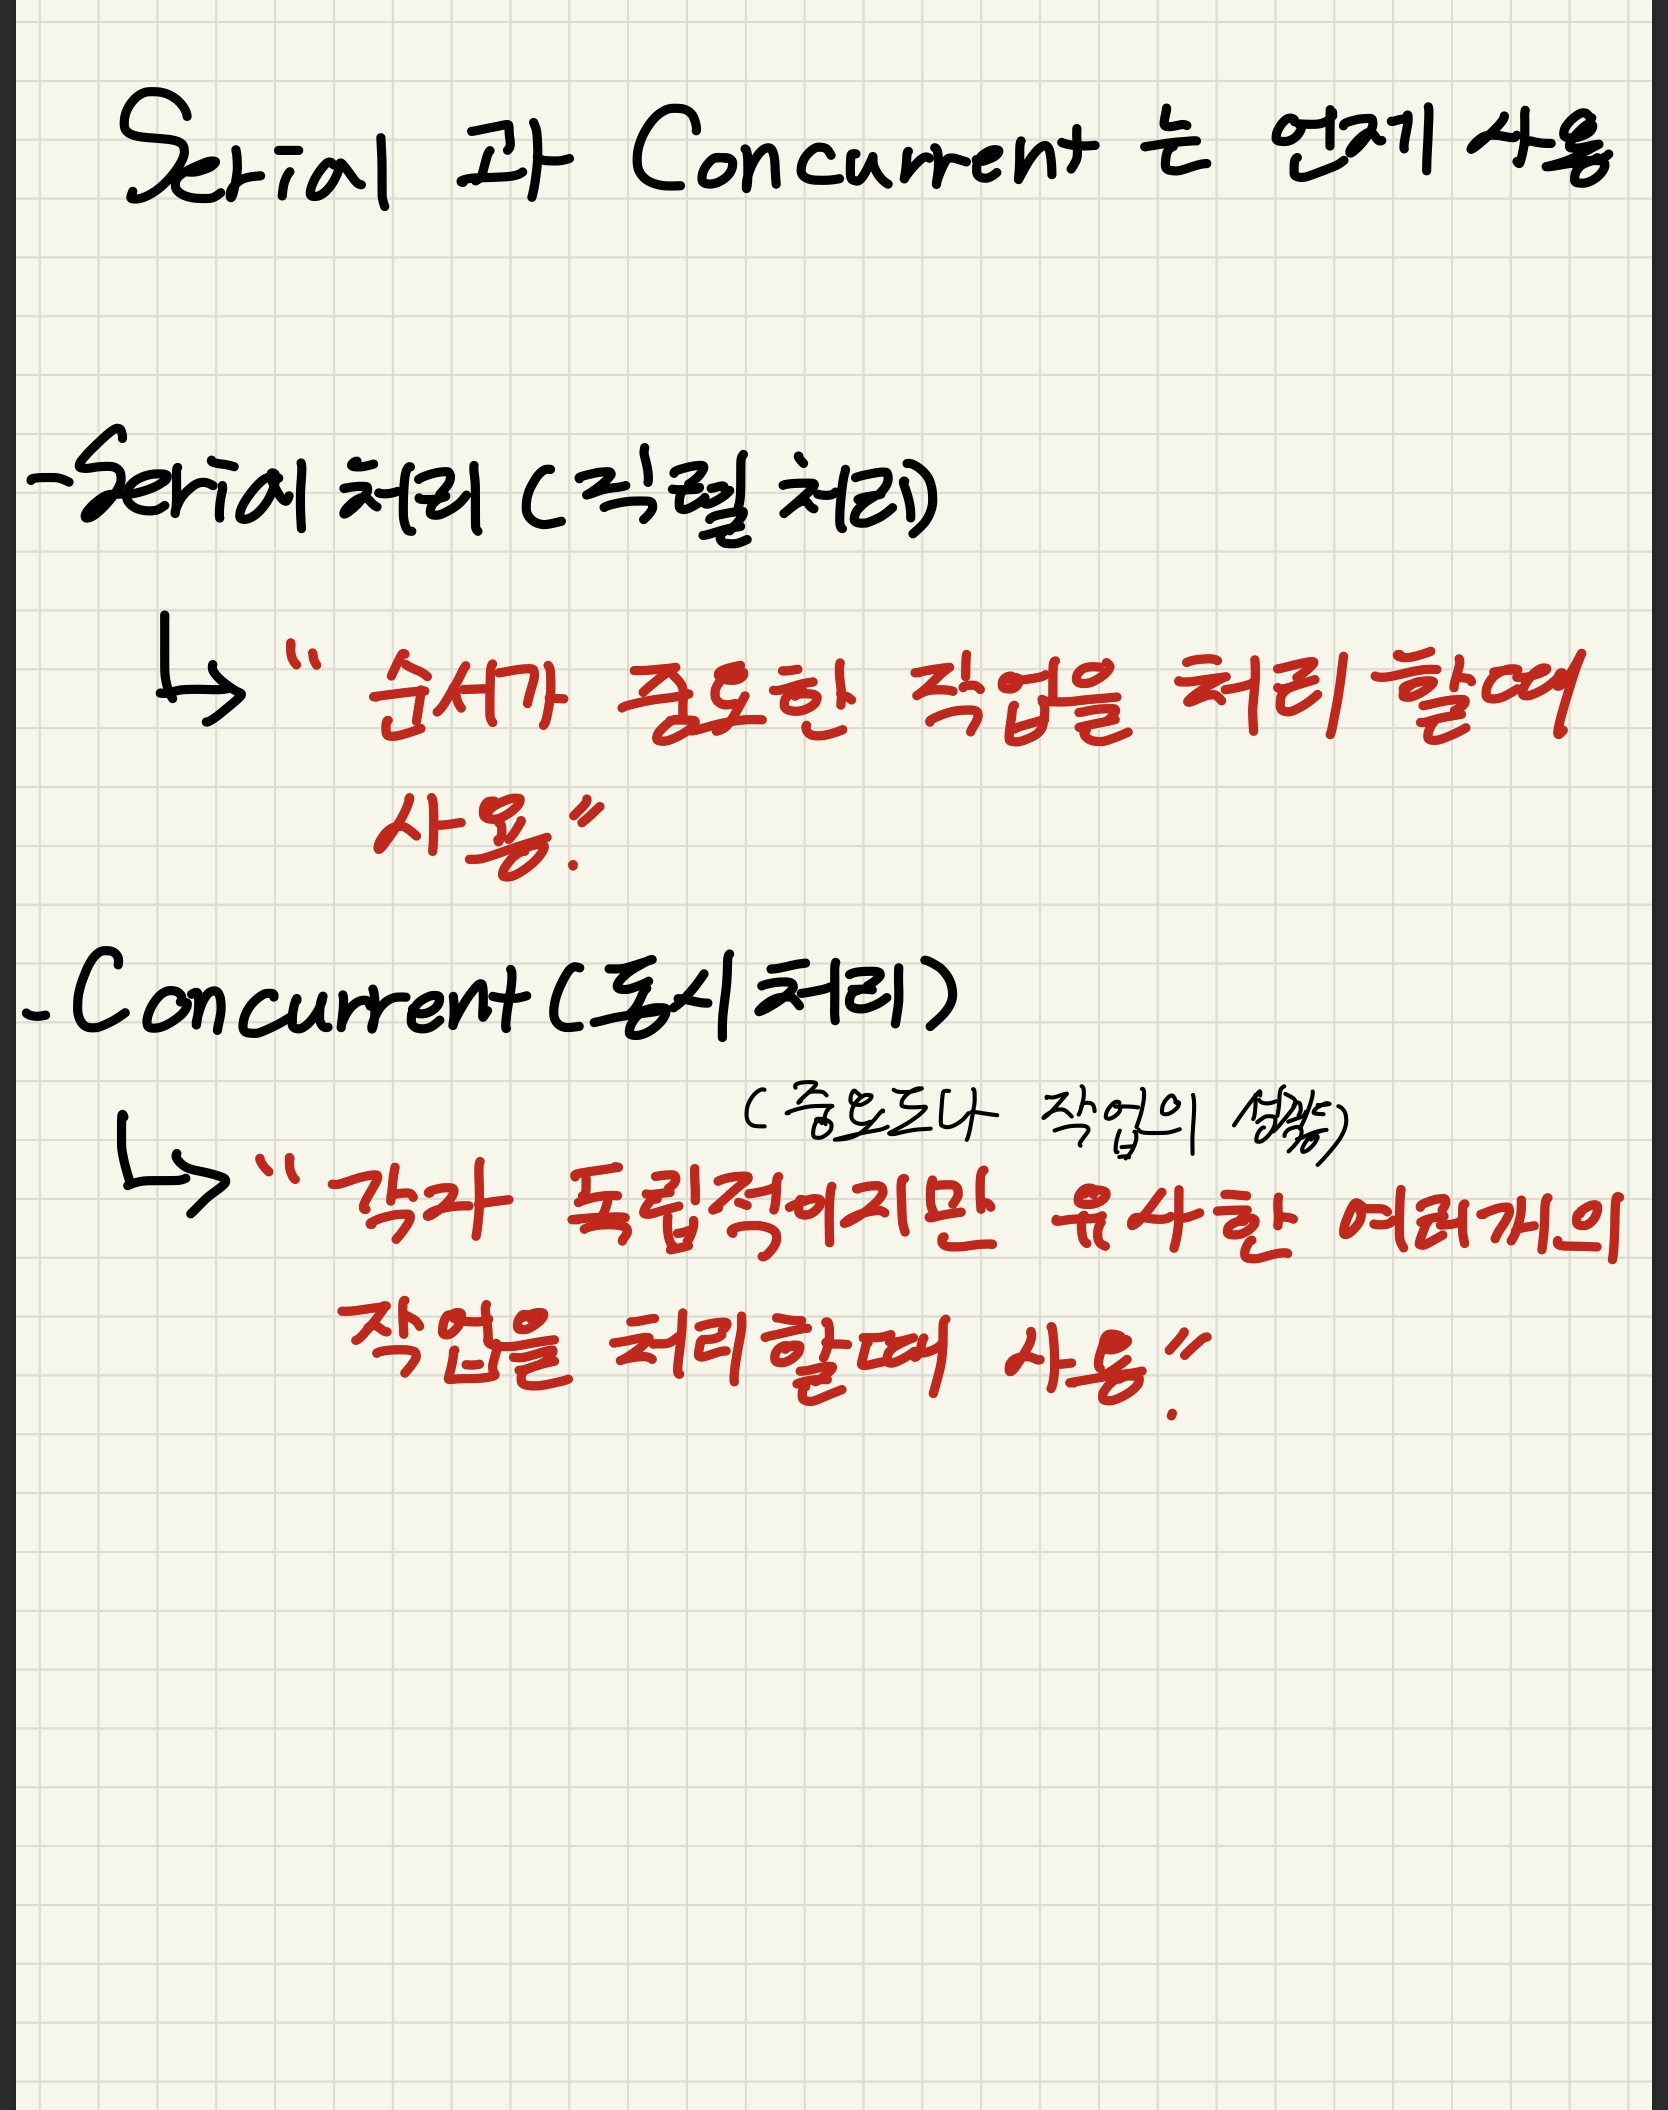 Serial 과 Concurrent 는 언제 사용
-Serial 처리 (직렬 처리)
↳ " 순서가 중요한 직업을 처리 할때
사용."
- Concurrent (동시 처리)
(중요도나 작업의 성격등)
↳ " 각자 독립적이지만 유사한 여러개의
작업을 처리할때 사용."